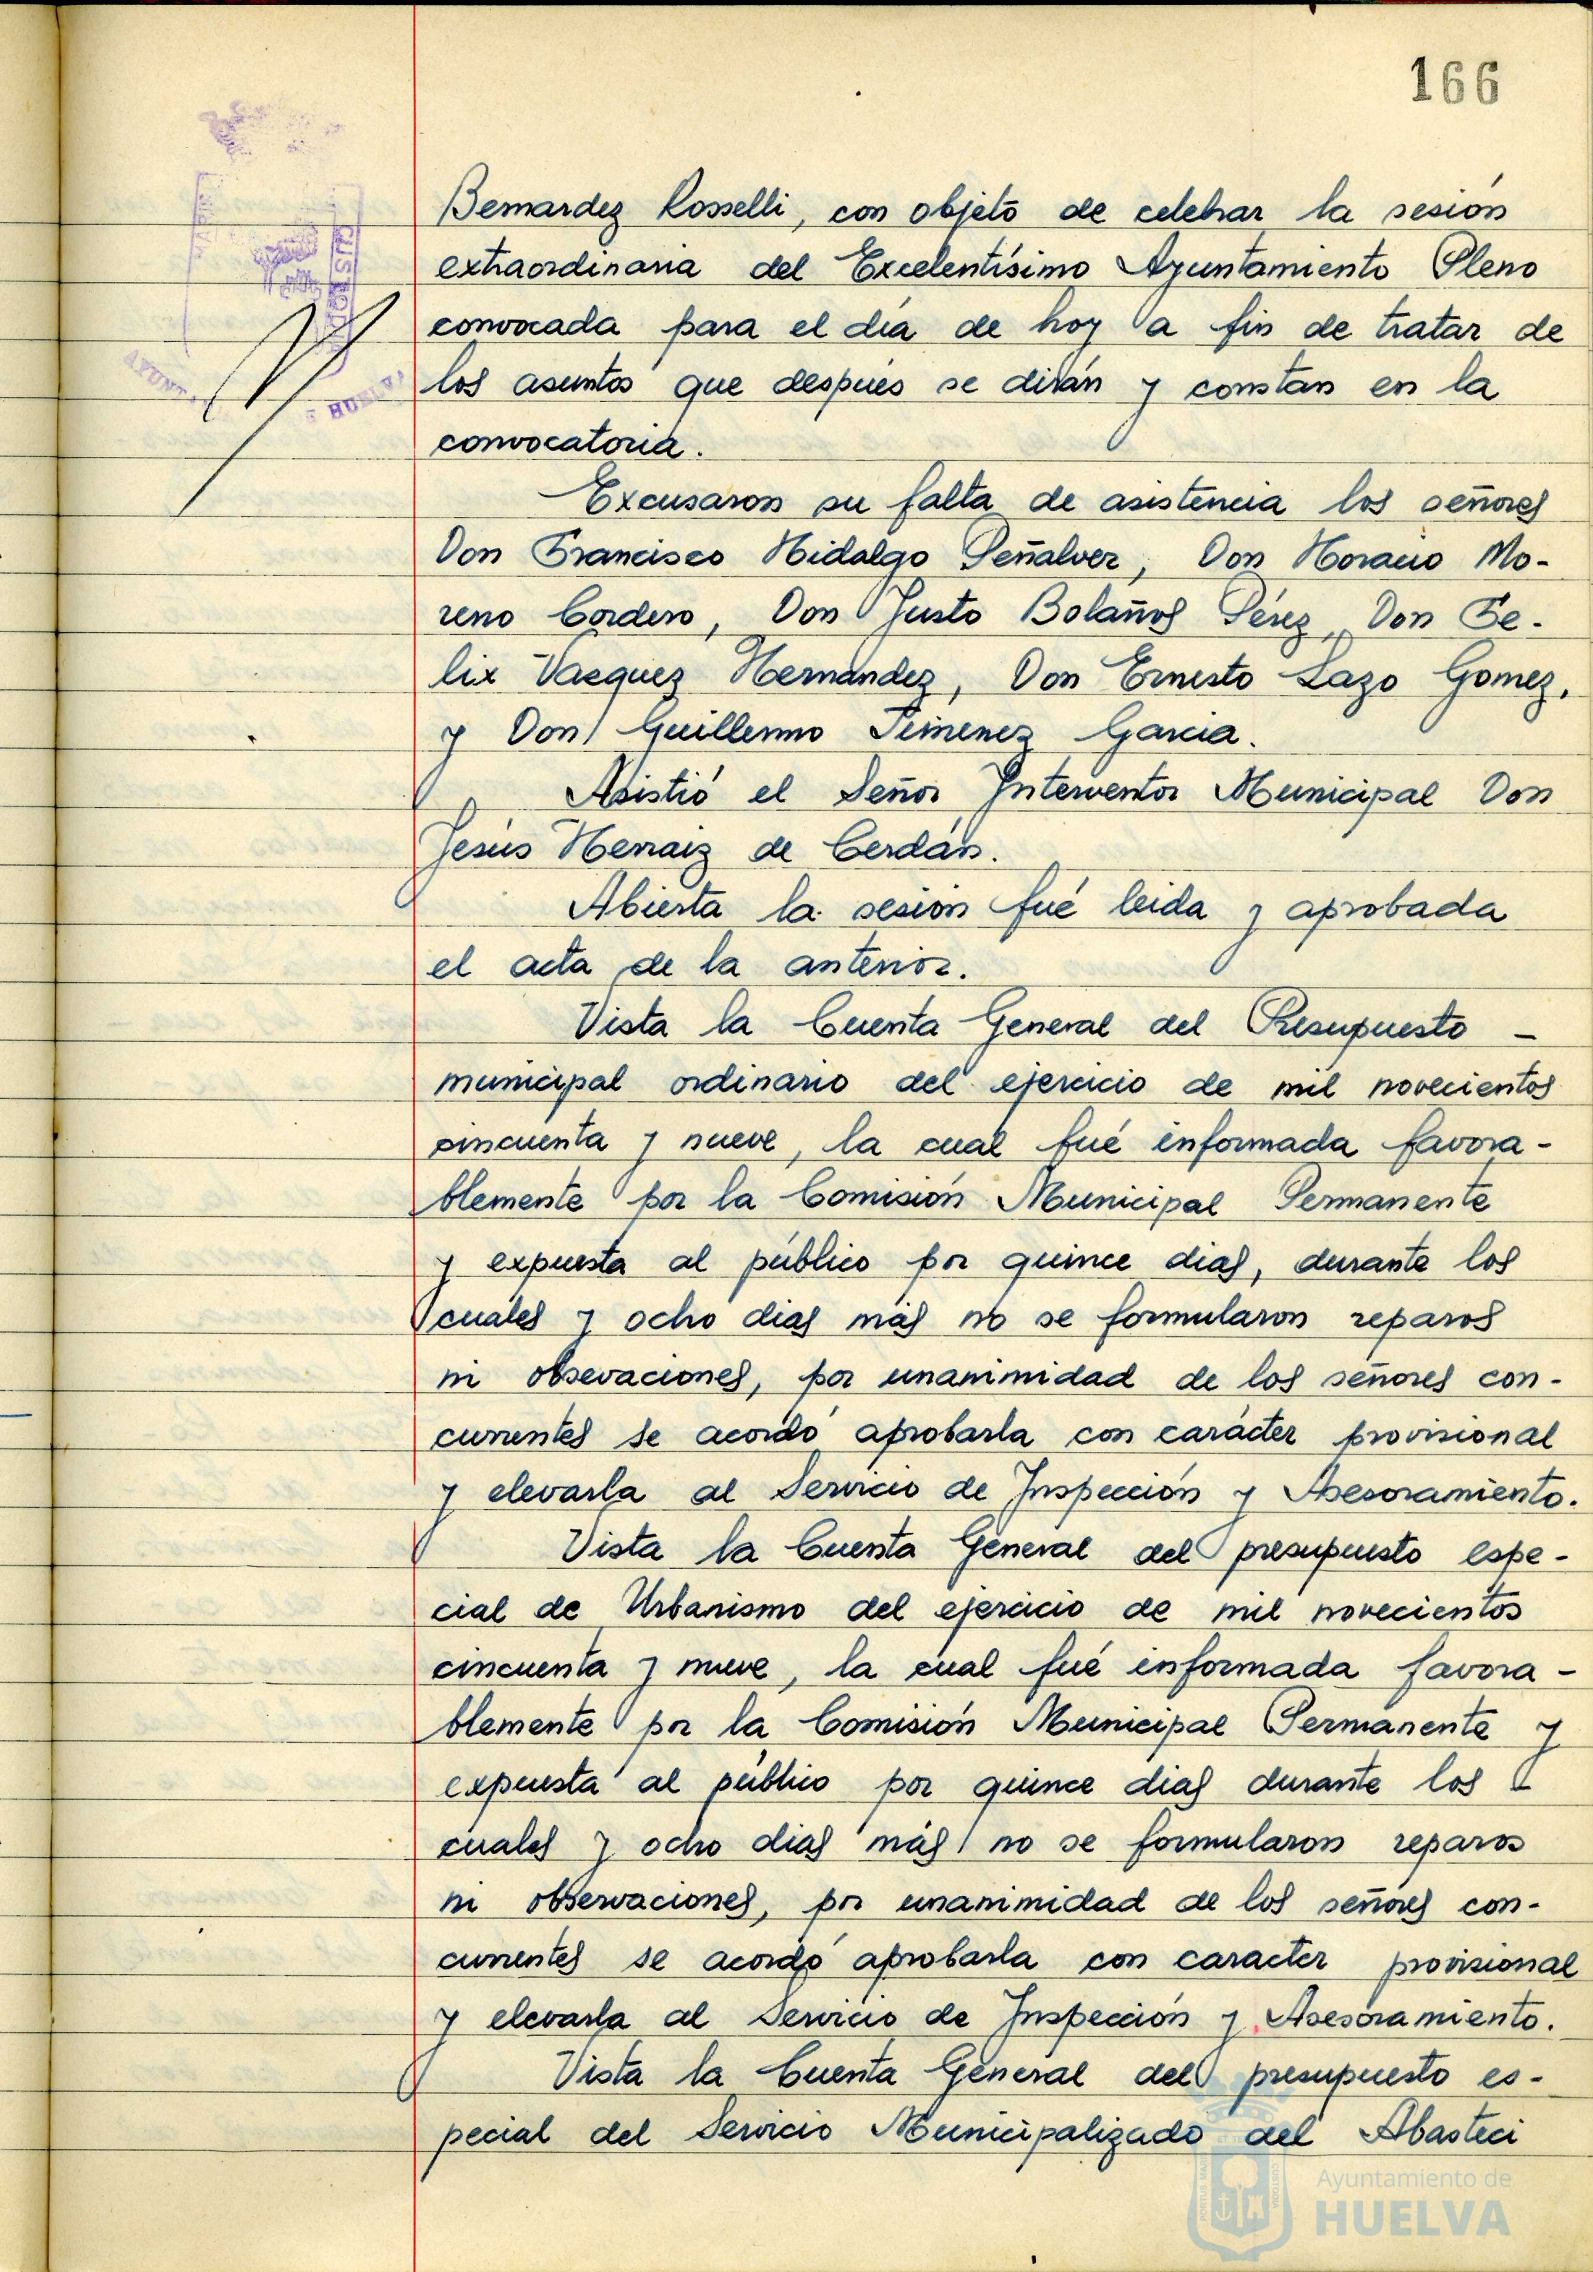 166
Bernardez Rosselli, con objeto de celebrar la sesión
extraordinaria del Excelentísimo Ayuntamiento Pleno
convocada para el día de hoy a fin de tratar de
los asuntos que después se dirán y constan en la
convocatoria.
Excusaron su falta de asistencia los señores
Don Francisco Hidalgo Peñalver, Don Horacio Mo-
reno Cordero, Don Justo Bolaños Pérez, Don Fe-
lix Vazquez Hernández, Don Ernesto Lazo Gomez,
y Don Guillermo Jimenez Garcia.
Asistió el Señor Interventor Municipal Don
Jesús Herraiz de Cerdán.
Abierta la sesión fué leida y aprobada
el acta de la anterior.
Vista la Cuenta General del Presupuesto -
municipal ordinario del ejercicio de mil novecientos
cincuenta y nueve, la cual fué informada favora-
blemente por la Comisión Municipal Permanente
y expuesta al público por quince dias, durante los
cuales y ocho dias más no se formularon reparos
ni obsevaciones, por unanimidad de los señores con-
currentes se acordó aprobarla con carácter provisional
y elevarla al Servicio de Inspección y Asesoramiento.
Vista la Cuenta General del presupuesto espe-
cial de Urbanismo del ejercicio de mil novecientos
cincuenta y nueve, la cual fué informada favora-
blemente por la Comisión Municipal Permanente y
expuesta al público por quince dias durante los -
cuales y ocho dias más no se formularon reparos
ni observaciones, por unanimidad de los señores con-
currentes se acordó aprobarla con caracter provisional
y elevarla al Servicio de Inspección y Asesoramiento.
Vista la Cuenta General del presupuesto es-
pecial del Servicio Municipalizado del Abasteci
CUSTODIA
HUELVA
Ayuntamiento de
HUELVA